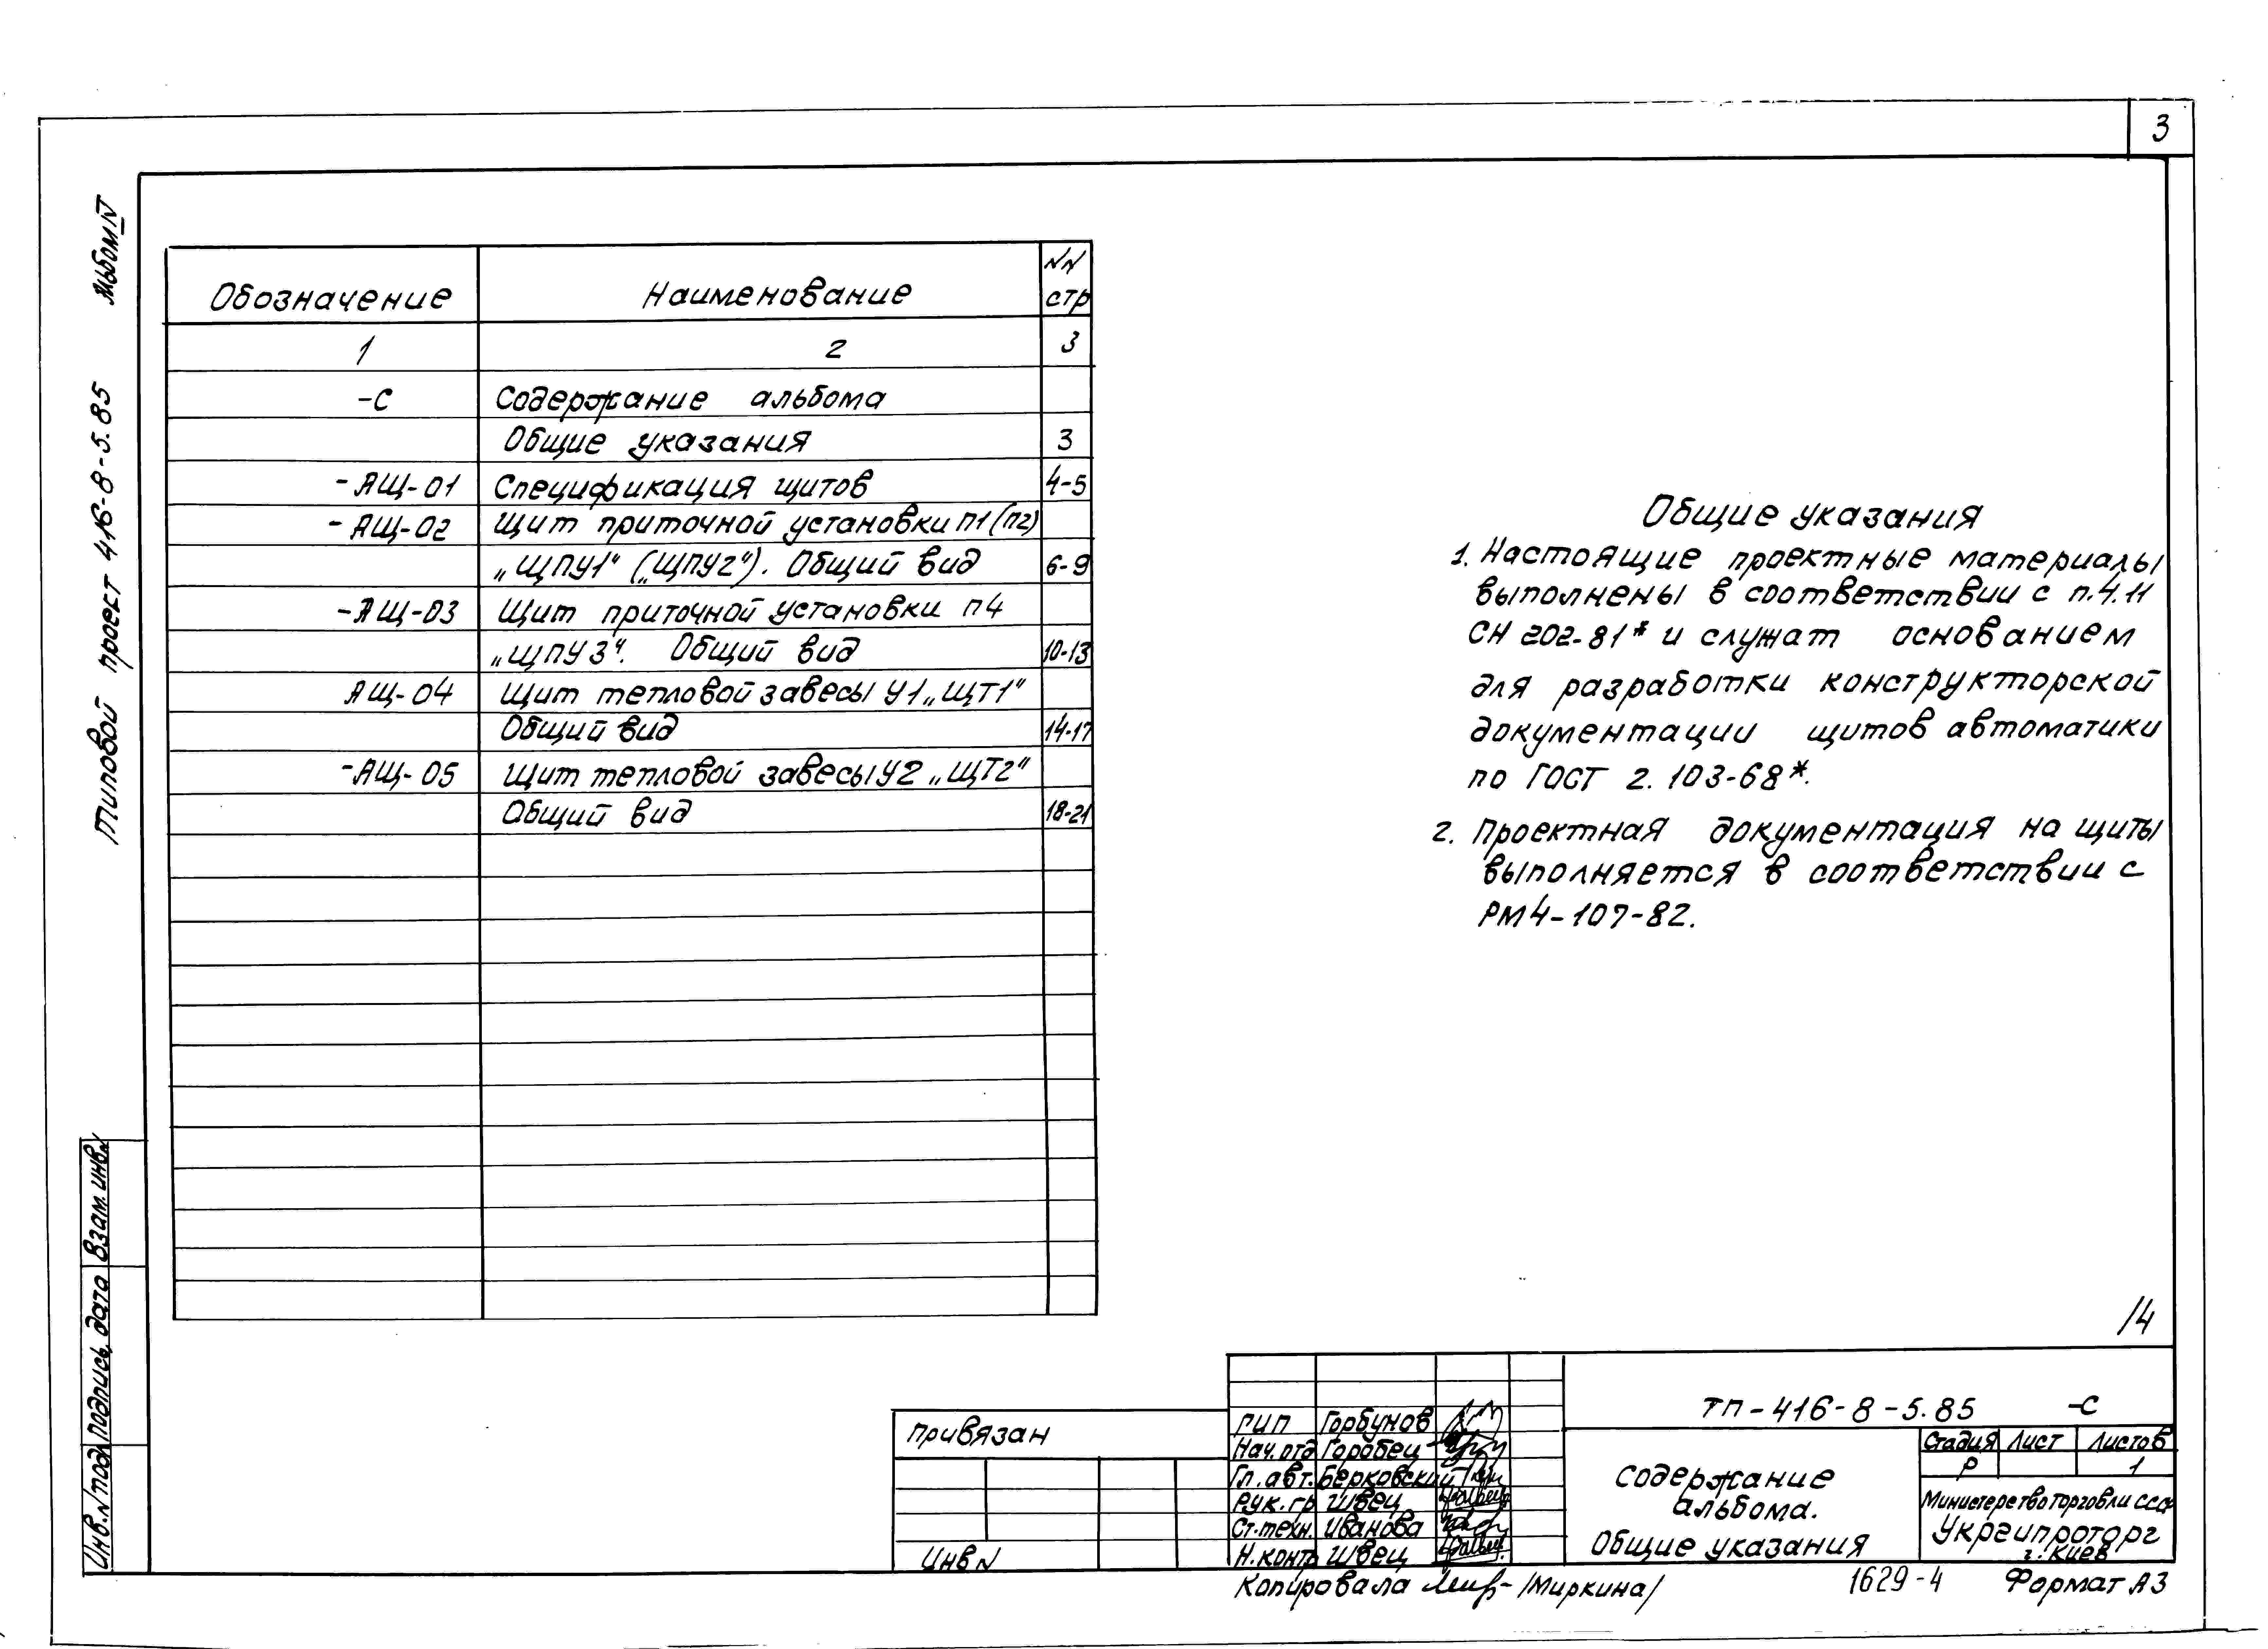 3
Типовой проект 416-8-5.85 Альбом IV
Обозначение Наименование NN стр
1 2 3
-С Содержание альбома
Общие указания 3
-АЩ-01 Спецификация щитов 4-5
-АЩ-02 Щит приточной установки П1(П2)
„ЩПУ1“ („ЩПУ2“). Общий вид 6-9
-АЩ-03 Щит приточной установки П4
„ЩПУ3“. Общий вид 10-13
АЩ-04 Щит тепловой завесы У1 „ЩТ1“
Общий вид 14-17
-АЩ-05 Щит тепловой завесы У2 „ЩТ2“
Общий вид 18-21
Общие указания
1. Настоящие проектные материалы
выполнены в соответствии с п.4.11
СН 202-81* и служат основанием
для разработки конструкторской
документации щитов автоматики
по ГОСТ 2.103-68*.
2. Проектная документация на щиты
выполняется в соответствии с
РМ4-107-82.
Взам. инв. N
Подпись, дата
Инв. N подл
14
Привязан
Инв N
ГИП Горбунов
Нач. отд Горобец
Гл. авт. Берковский
Рук. гр Швец
Ст. техн. Иванова
Н. контр Швец
ТП-416-8-5.85 -С
Содержание
альбома.
Общие указания
Стадия Лист Листов
Р 1
Министерство торговли СССР
Укргипроторг
г. Киев
Копировала /Миркина/
1629-4 Формат А3